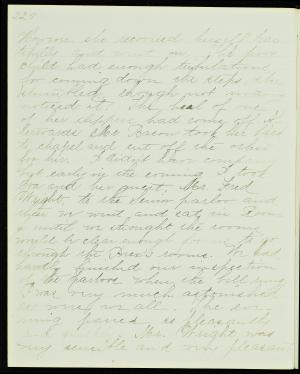 229
she recovered herself has
and went on. The poor
child had enough tribulations
for coming down the steps she
stumbled, though not many
noticed it. The heel of one
of her slippers had come off. Af-
terwards Mr Bacon took her back
to chapel and cut off the other
for her. I didn't have
but early in the evening I took
and her guest, Mr. Fred
Wright to the Senior parlor and
there we went and sat in Room
until we thought the rooms
would be clear enough for us to go
through the Pres's rooms. We had
hardly finished our inspection
of the parlors when the bell rang
I was very much astonished
as were we all. The eve-
ning passed so pleasantly
Mr. Wright was
very sensible and very pleasant